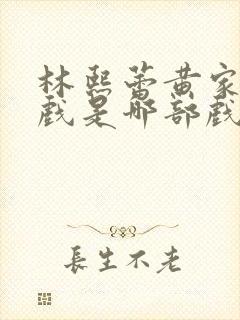 林熙蕾黄家
戲是那部戲
長生不老